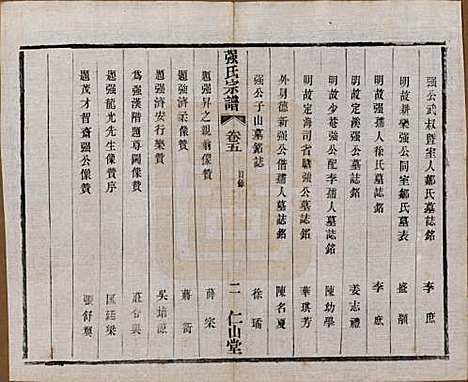 强公武叔暨室人鄒氏墓誌銘 李庶
明故耕樂强公同室鄒氏墓表 盛顒
明故强孺人徐氏墓誌銘 李庶
明故定溪强公墓誌銘 姜志禮
明故少菴强公配李孺人墓誌銘 陳幼學
明故定海司省驥强公墓誌銘 華琪芳
外舅德新强公偕孺人墓誌銘 陳名夏
强公子山墓銘誌 徐瑀
强氏宗譜 卷五 目錄 二 仁山堂
題强昇之親翁像贊 薛宗
題强濟柔像贊 蔣衡
題强濟安行樂贊 吳培源
爲强漢階題尊圖像贊 莊令輿
題强龍光先生像贊序 匡廷梁
題茂才智齋强公像贊 張舒奠